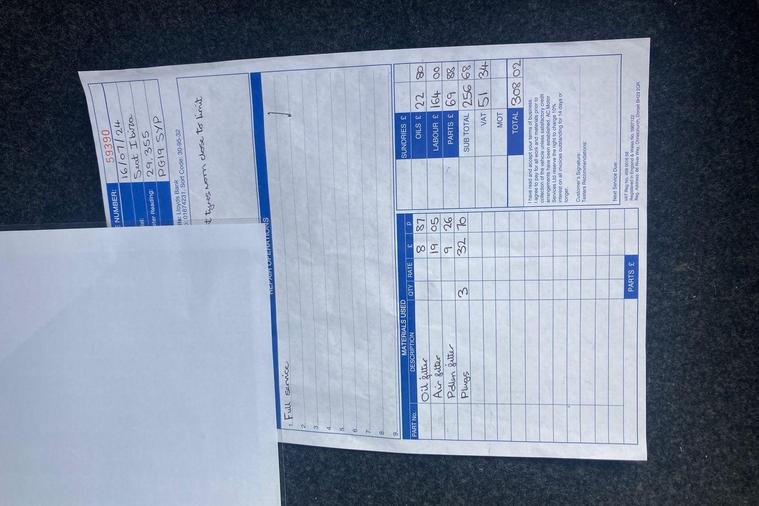 E NUMBER: 59390
16/07/24
Seat Ibiza
ter Reading: 29,355
PG19 SYP
ils: Lloyds Bank
Sort Code: 30-95-32
t tyres worn close to limit
REPAIR OPERATIONS
1. Full service
2.
3.
4.
5.
6.
7.
8.
9.
MATERIALS USED
PART No. DESCRIPTION QTY RATE £ P
Oil filter 8 87
Air filter 19 05
Pollen filter 9 26
Plugs 3 32 70
PARTS £
SUNDRIES £
OILS £ 22 80
LABOUR £ 164 00
PARTS £ 69 88
SUB TOTAL 256 68
VAT 51 34
MOT
TOTAL 308 02
I have read and accept your terms of business.
I agree to pay for all work and materials prior to
collection of the vehicle unless satisfactory credit
arrangements have been established. AC Motor
Services Ltd reserve the right to charge 10%
interest on all invoices outstanding for 14 days or
longer.
Customer's Signature:
Testers Recommendations:
Next Service Due: